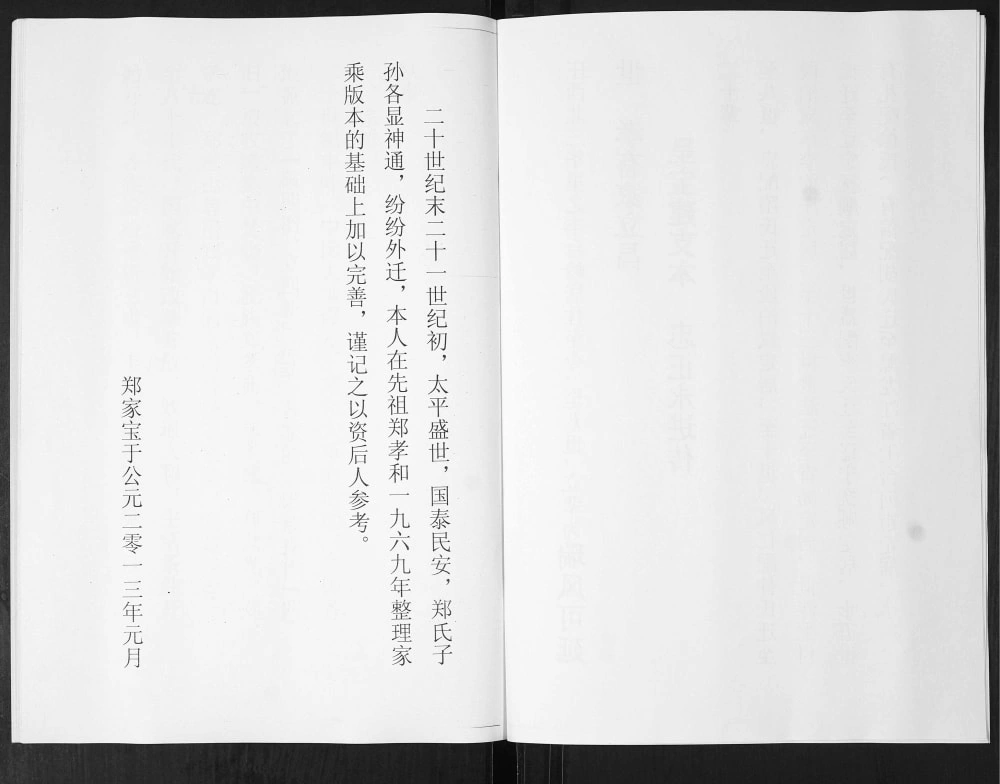 二十世纪末二十一世纪初，太平盛世，国泰民安，郑氏子
孙各显神通，纷纷外迁，本人在先祖郑孝和一九六九年整理家
乘版本的基础上加以完善，谨记之以资后人参考。
郑家宝于公元二零一三年元月